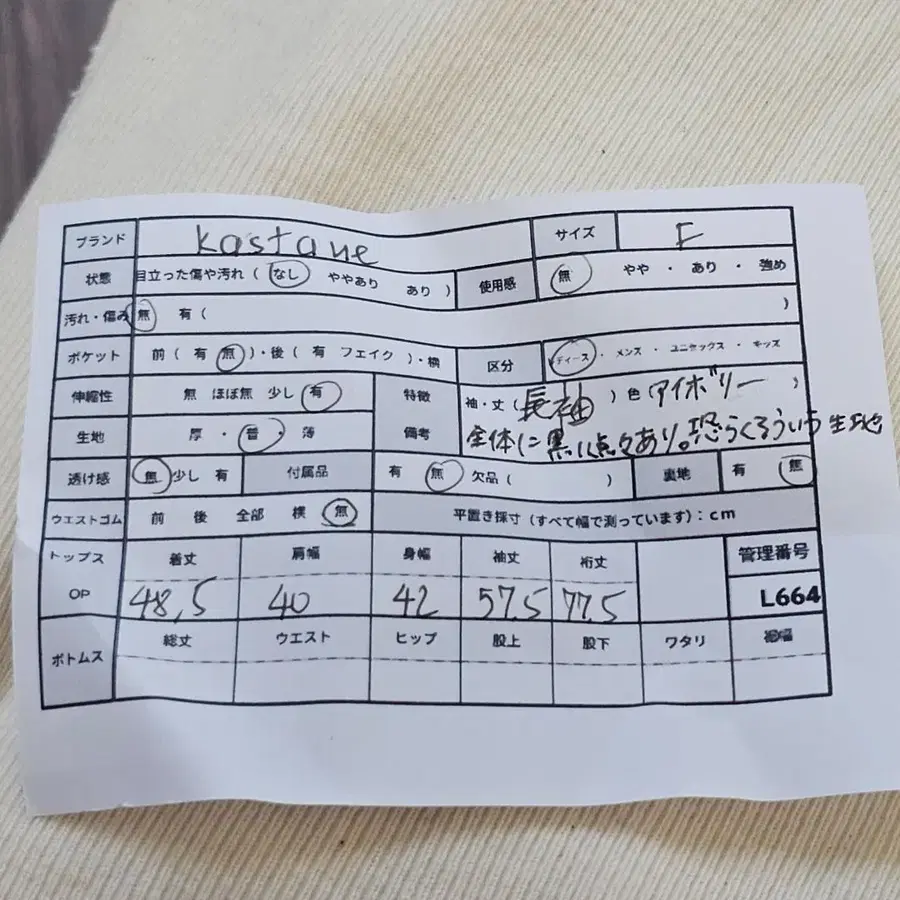 ブランド kastane サイズ F
状態 目立った傷や汚れ ( なし ややあり あり ) 使用感 無 やや ・ あり ・ 強め
汚れ・傷み 無 有 ( )
ポケット 前 ( 有 無 )・後 ( 有 フェイク )・横 区分 ディース ・ メンズ ・ ユニセックス ・ キッズ
伸縮性 無 ほぼ無 少し 有 特徴 袖・丈 ( 長袖 ) 色 アイボリー )
生地 厚 ・ 普 ・ 薄 備考 全体に黒い点々あり。恐らくそういう生地
透け感 無 少し 有 付属品 有 無 欠品 ( ) 裏地 有 無
ウエストゴム 前 後 全部 横 無 平置き採寸 (すべて幅で測っています) : cm
トップス 着丈 肩幅 身幅 袖丈 裄丈 管理番号
OP 48,5 40 42 57.5 77.5 L664
ボトムス 総丈 ウエスト ヒップ 股上 股下 ワタリ 裾幅